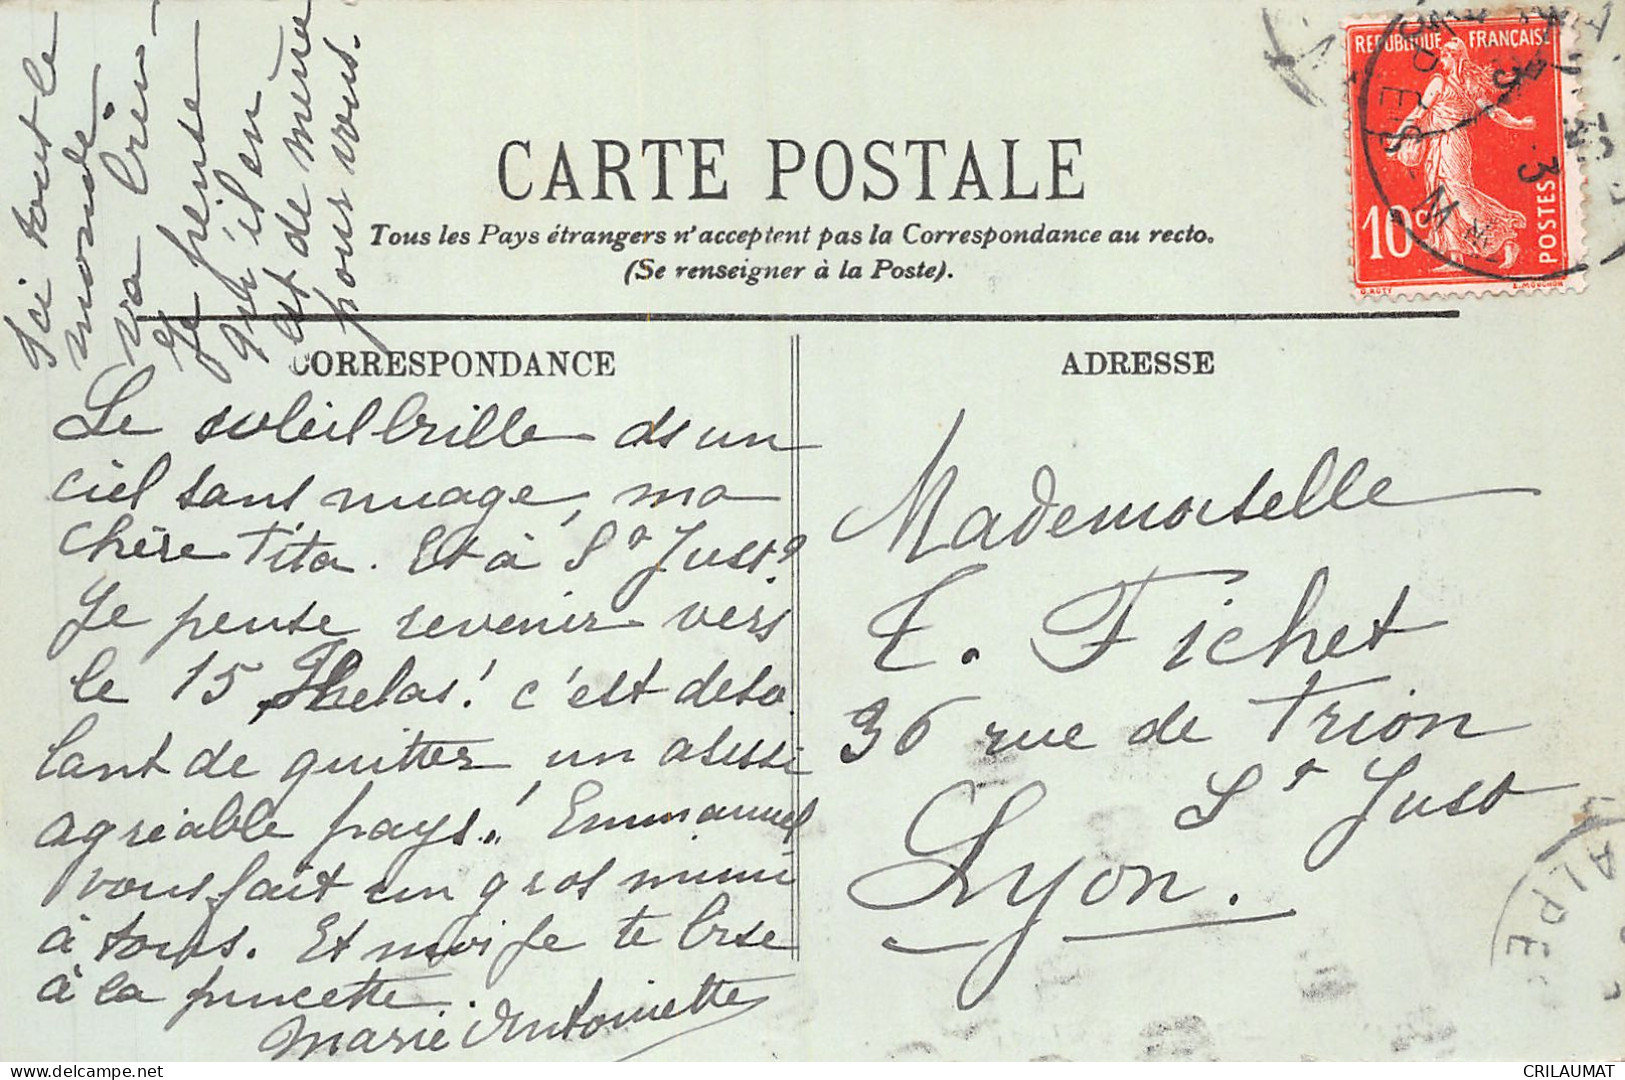 Ici tout le
monde
va bien.
Je pense
qu'il en
est de même
pour vous.
CARTE POSTALE
Tous les Pays étrangers n'acceptent pas la Correspondance au recto.
(Se renseigner à la Poste).
REPUBLIQUE FRANÇAISE
10 c
POSTES
O. ROTY
E. MOUCHON
CORRESPONDANCE
Le soleil brille ds un
ciel sans nuage, ma
chère Tita. Et à St Just?
Je pense revenir vers
le 15 helas! c'est déso
lant de quitter un aussi
agréable pays! Emmanuel
vous fait un gros mimi
à tous. Et moi je te bise
à la pincette.
Marie Antoinette
ADRESSE
Mademoiselle
T. Fichet
36 rue de Trion
St Just
Lyon.
ALPE
CRILAUMAT